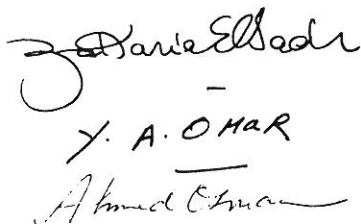 Zakaria ElBadr
Y. A. OMAR
Ahmed Osman